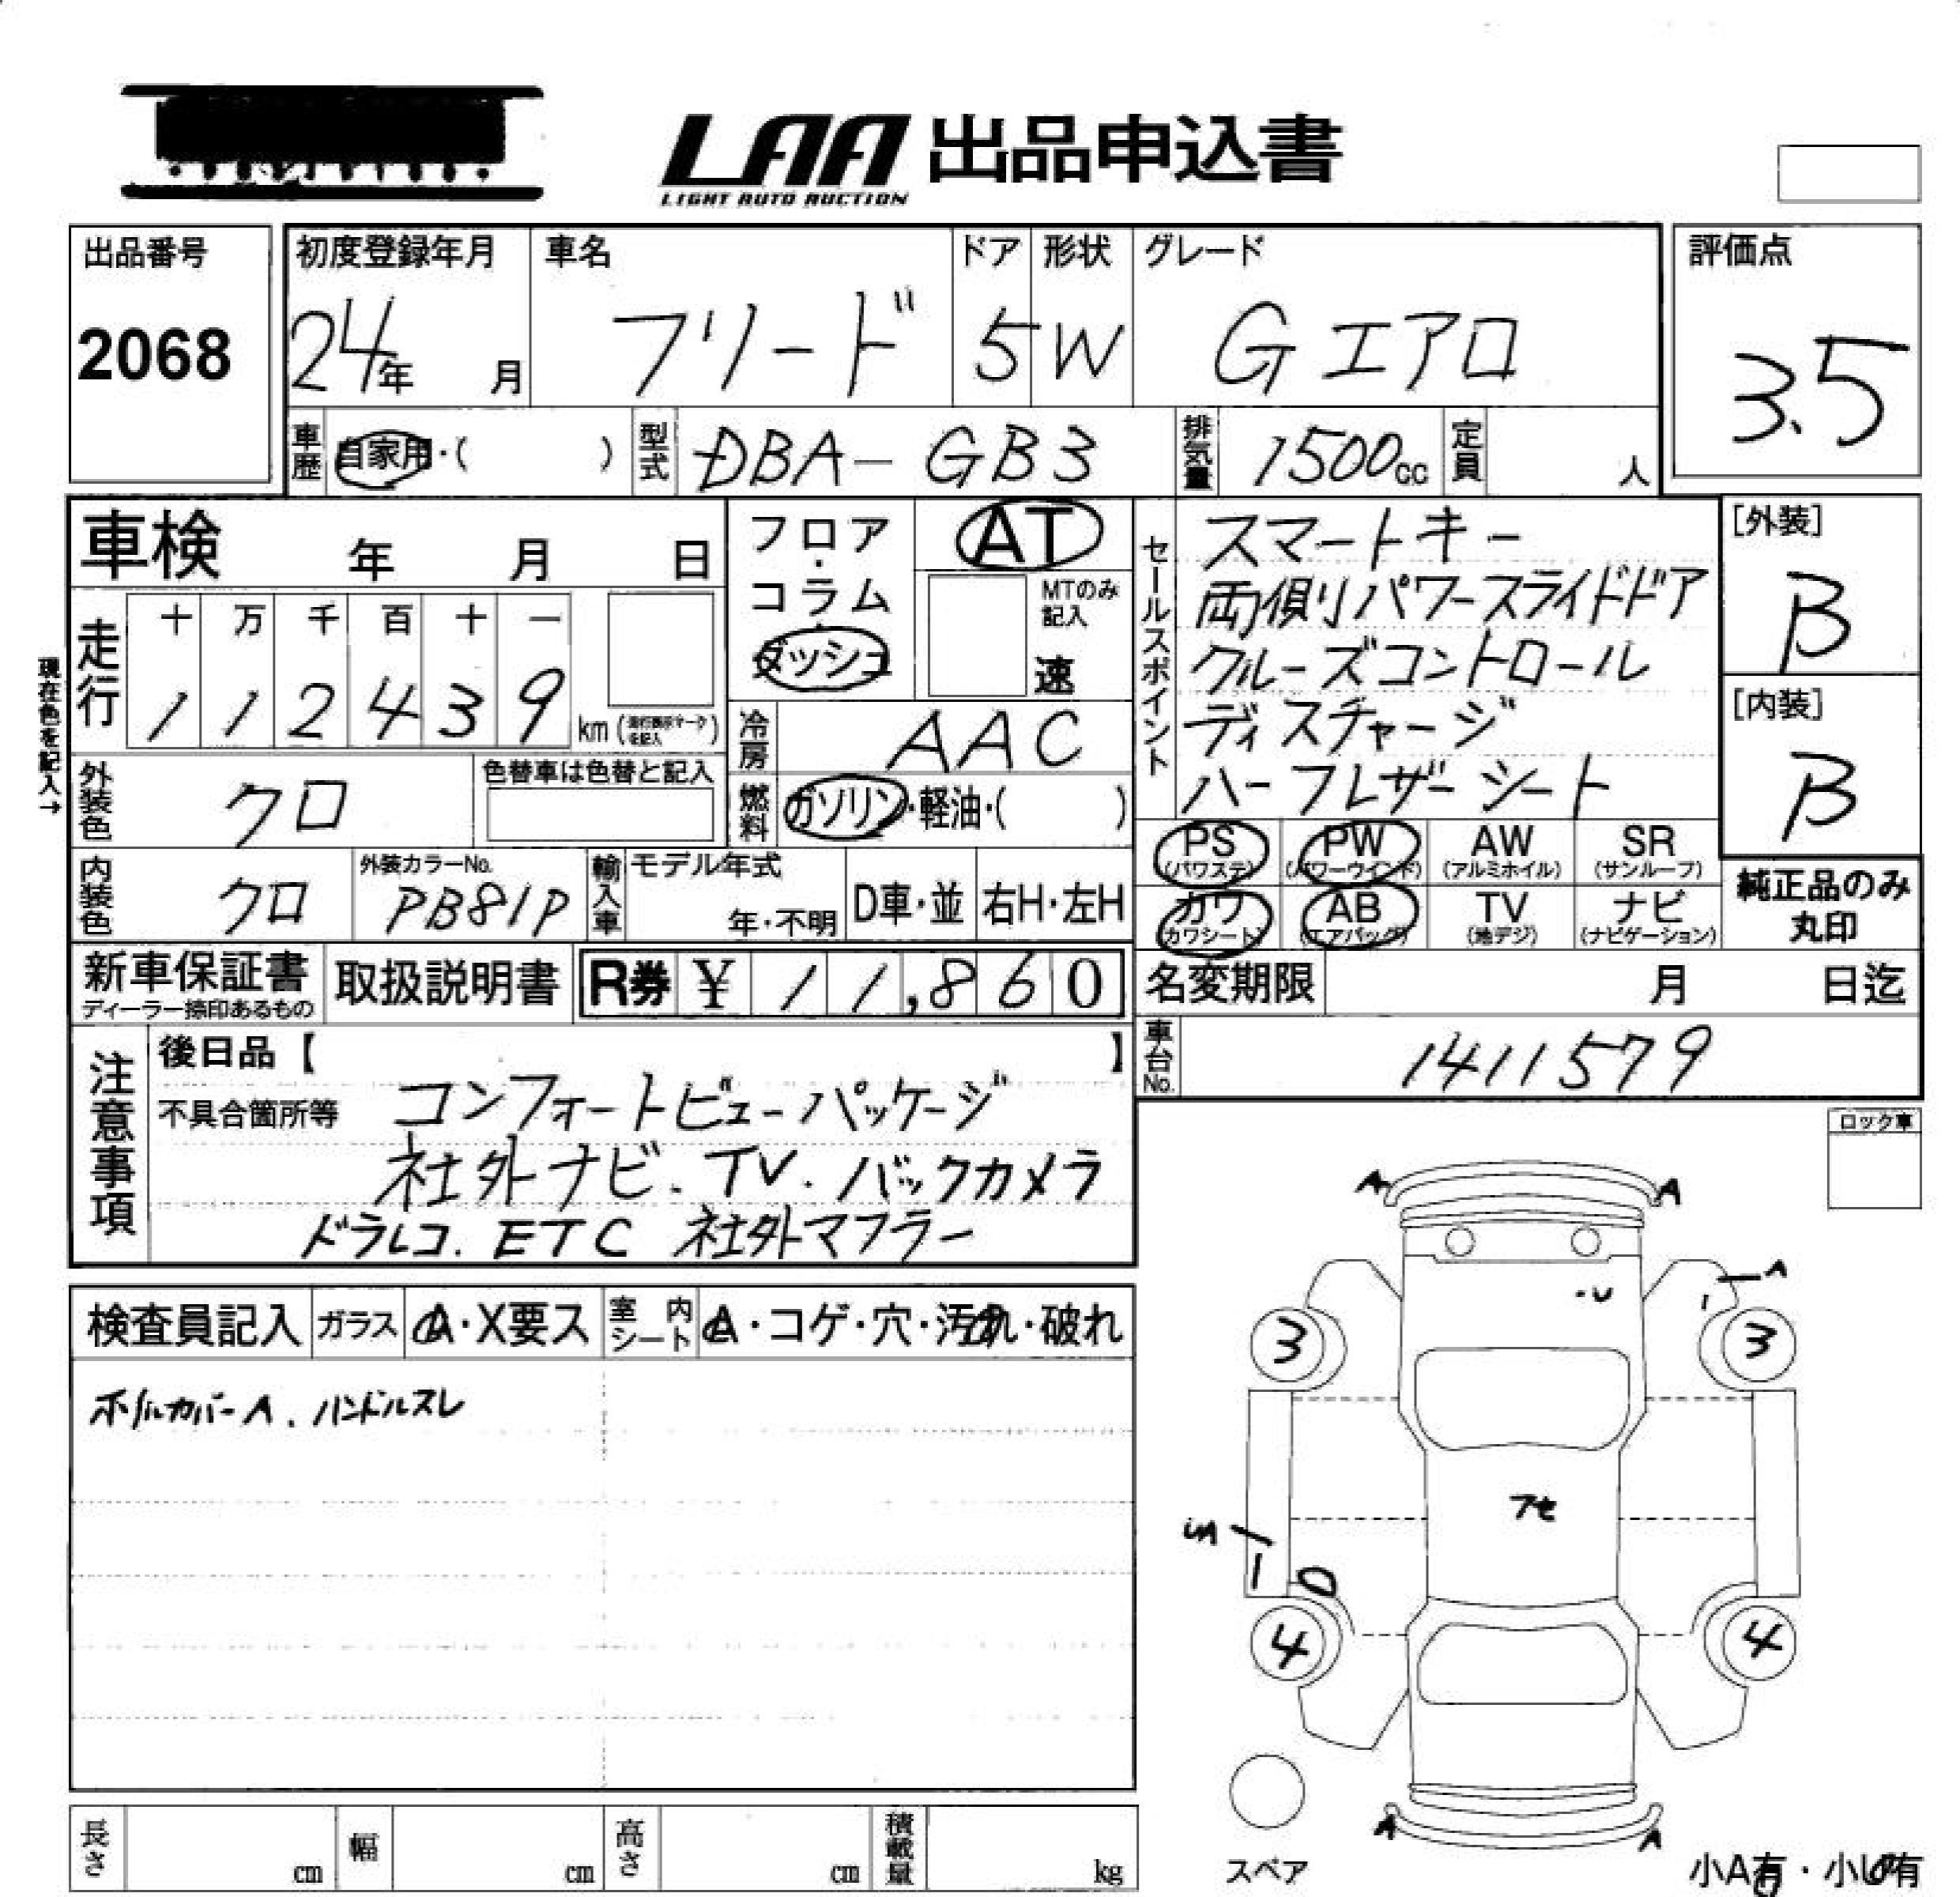 LAA 出品申込書
LIGHT AUTO AUCTION
出品番号
2068
初度登録年月
24年 月
車名
フリード
ドア
5
形状
W
グレード
Gエアロ
評価点
3.5
車歴
自家用・( )
型式
DBA-GB3
排気量
1500cc
定員
人
車検 年 月 日
フロア・
コラム・
ダッシュ
AT
MTのみ
記入
速
現在色を記入→
走行
十 万 千 百 十 一
1 1 2 4 3 9
km
冷房
AAC
燃料
ガソリン・軽油・( )
外装色
クロ
色替車は色替と記入
内装色
クロ
外装カラーNo.
PB81P
輸入車
モデル年式
年・不明
D車・並
右H・左H
セールスポイント
スマートキー
両側パワースライドドア
クルーズコントロール
ディスチャージ
ハーフレザーシート
[外装]
B
[内装]
B
PS
(パワステ)
PW
(パワーウィンド)
AW
(アルミホイル)
SR
(サンルーフ)
カワ
(カワシート)
AB
(エアバッグ)
TV
(地デジ)
ナビ
(ナビゲーション)
純正品のみ
丸印
新車保証書
ディーラー捺印あるもの
取扱説明書
R券 ¥ 11,860
名変期限 月 日迄
車台No.
1411579
注意事項
後日品【 】
不具合箇所等
コンフォートビューパッケージ
社外ナビ.TV.バックカメラ
ドラレコ.ETC 社外マフラー
ロック車
検査員記入
ガラス
A・X要ス
室内シート
A・コゲ・穴・汚れ・破れ
ホイルカバーA.ハンドルスレ
A A
A
・U
3 3
フセ
in
4 4
A A
スペア
小A有・小U有
長さ cm
幅 cm
高さ cm
積載量 kg